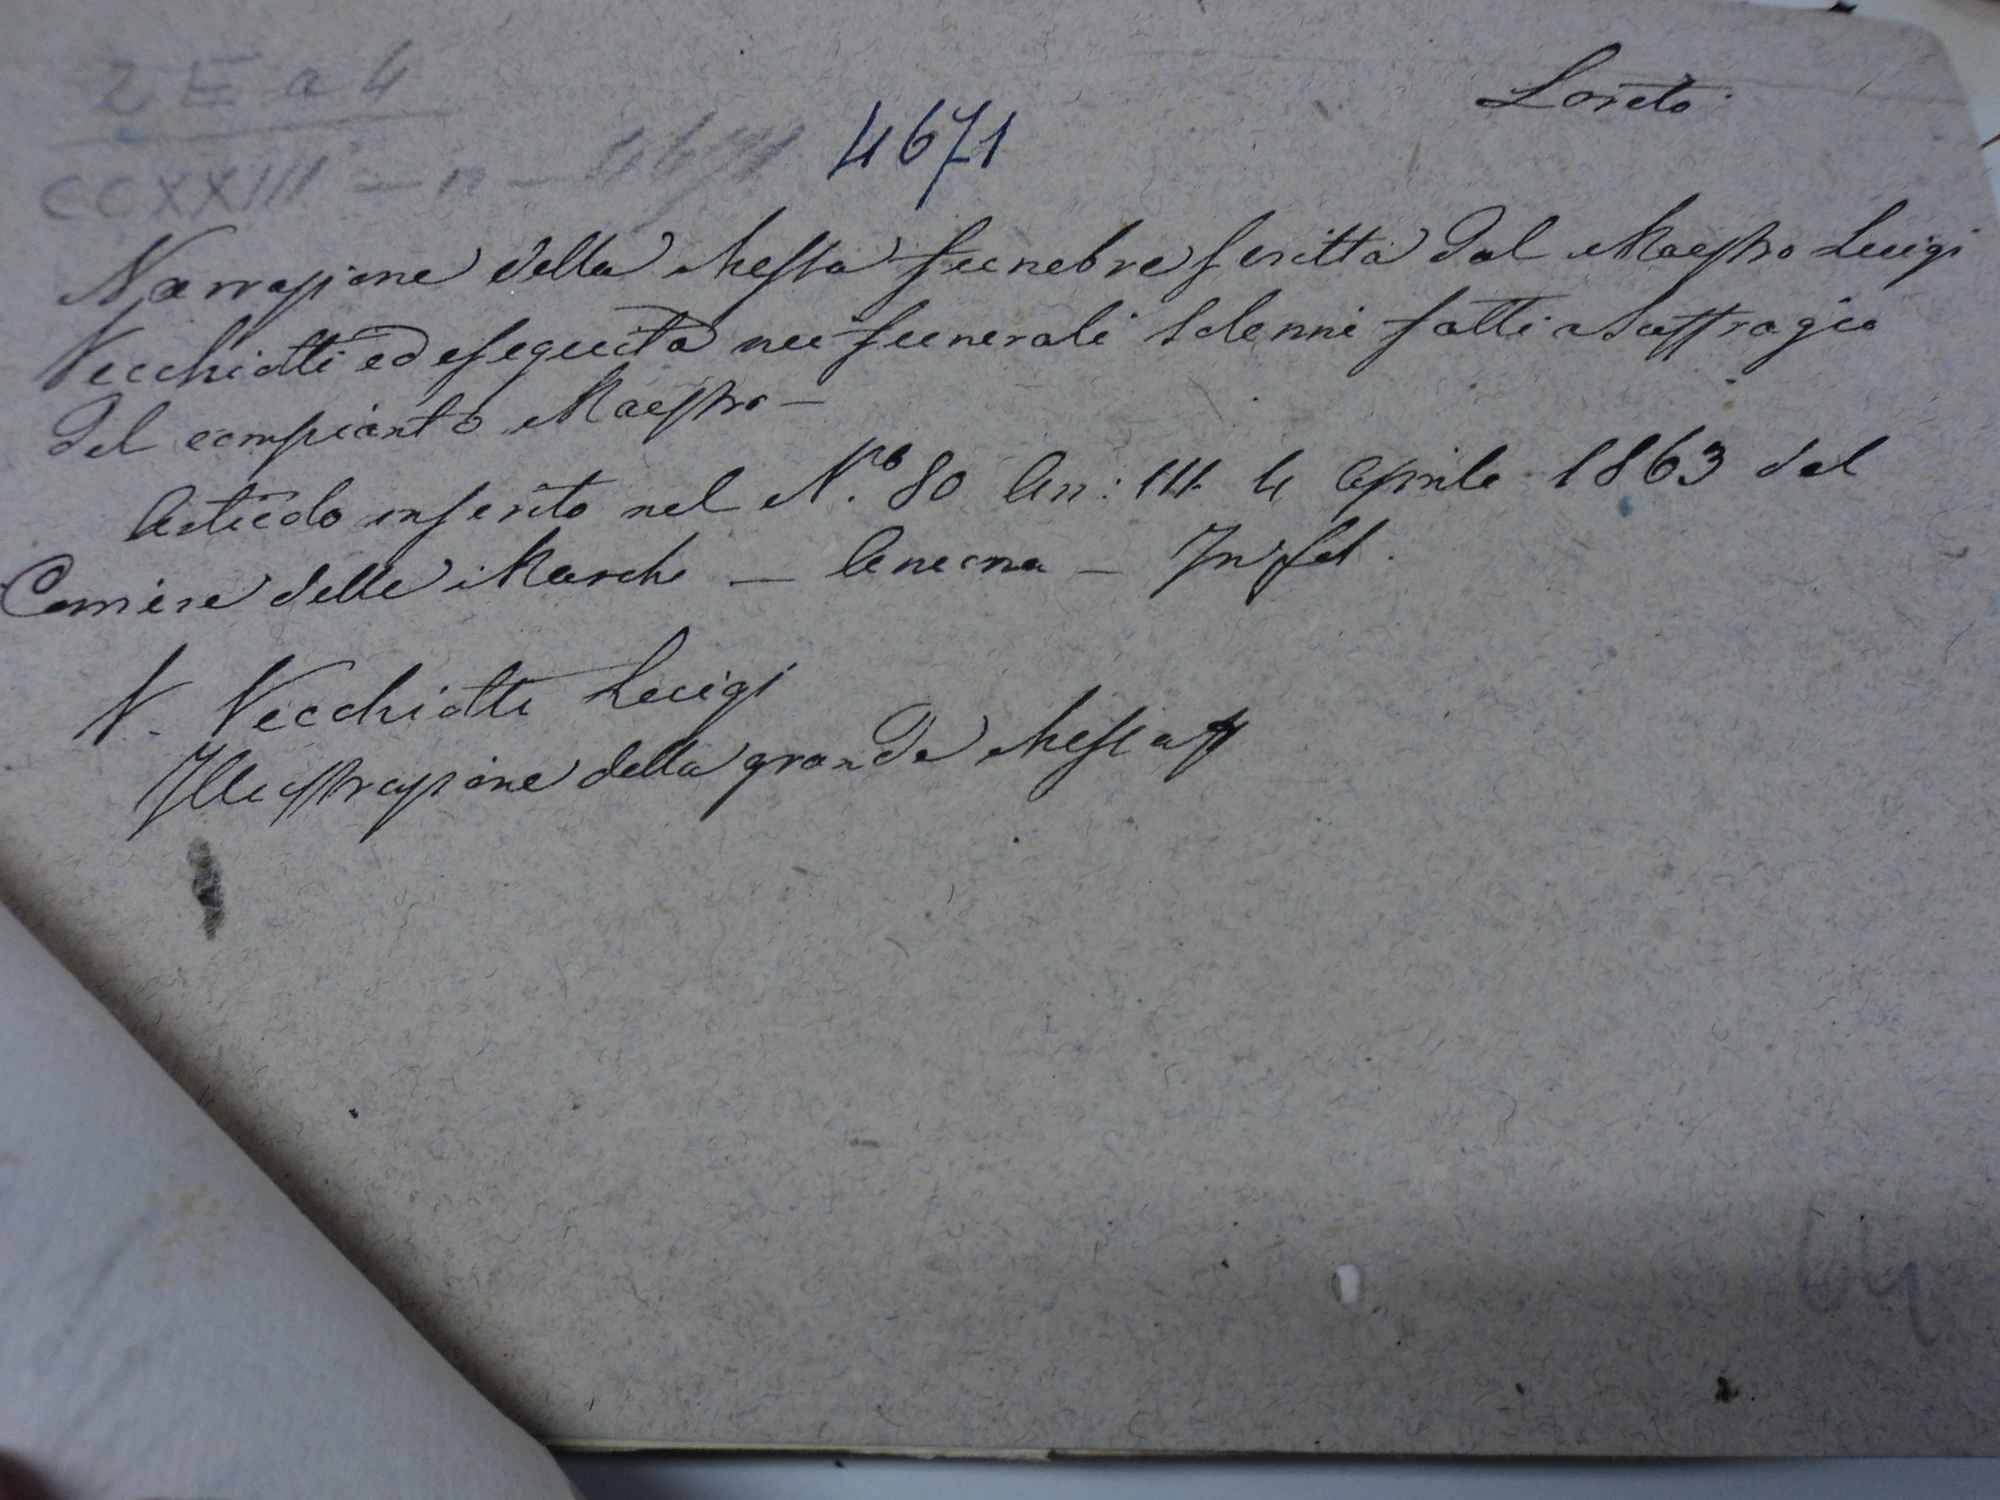 Loreto
2 E a 4
CCXXIII - n - 4671 4671
Narrazione della Messa funebre scritta dal Maestro Luigi
Vecchiotti ed eseguita nei funerali solenni fatti a Suffragio
del compianto Maestro -
Articolo inserito nel N.ro 80 An: III 4 Aprile 1863 del
Corriere delle Marche - Ancona - In fol.
V. Vecchiotti Luigi
Illustrazione della grande Messa
64